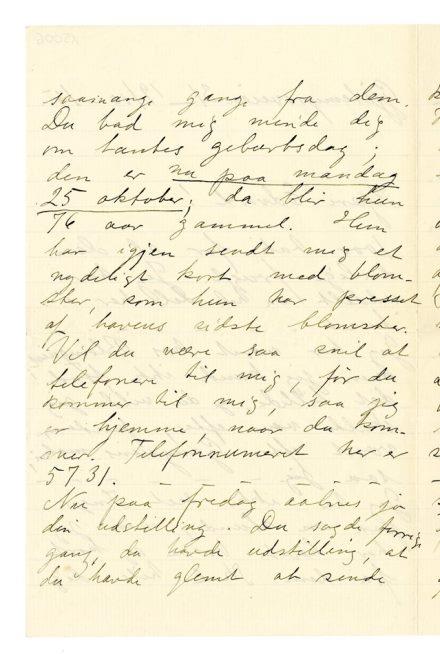 saamange gange fra dem.
Du bad mig minde dig
om tantes gebærtsdag,
den er nu paa mandag
25 oktober; da blir hun
76 aar gammel. Hun
har igjen sendt mig et
nydeligt kort med blom-
ster, som hun har presset
af havens sidste blomster.
Vil du være saa snil at
telefonere til mig, før du
kommer til mig, saa jeg
er hjemme, naar du kom-
mer. Telefonnumeret her er
5731. — — — — —
Nu paa fredag aabnes jo
din udstilling. Du sagde forrige
gang, du havde udstilling, at
du havde glemt at sende